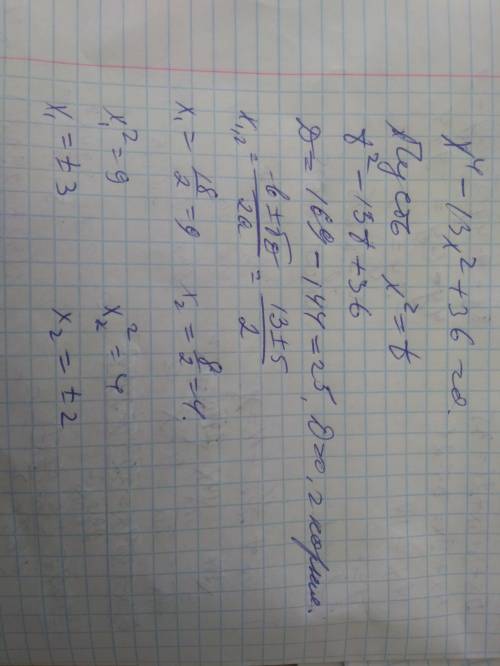 x⁴ - 13x² + 36 = 0.
Пусть x² = t
t² - 13t + 36
D = 169 - 144 = 25, D>0, 2 корня.
x₁,₂ = (-b ± √D)/2a = (13 ± 5)/2
x₁ = 18/2 = 9 x₂ = 8/2 = 4.
x₁² = 9 x₂² = 4
x₁ = ±3 x₂ = ±2